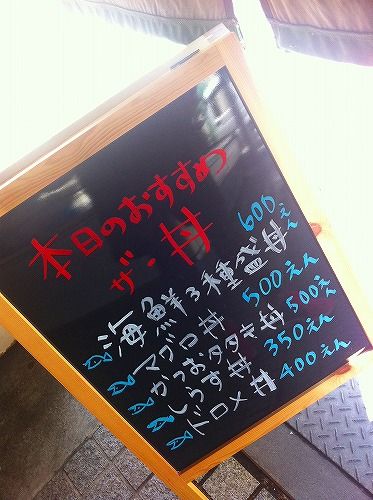 本日のおすすめ
ザ・丼
海鮮3種盛丼 600えん
マグロ丼 500えん
かつおタタキ丼 500えん
しらす丼 350えん
ドロメ丼 400えん